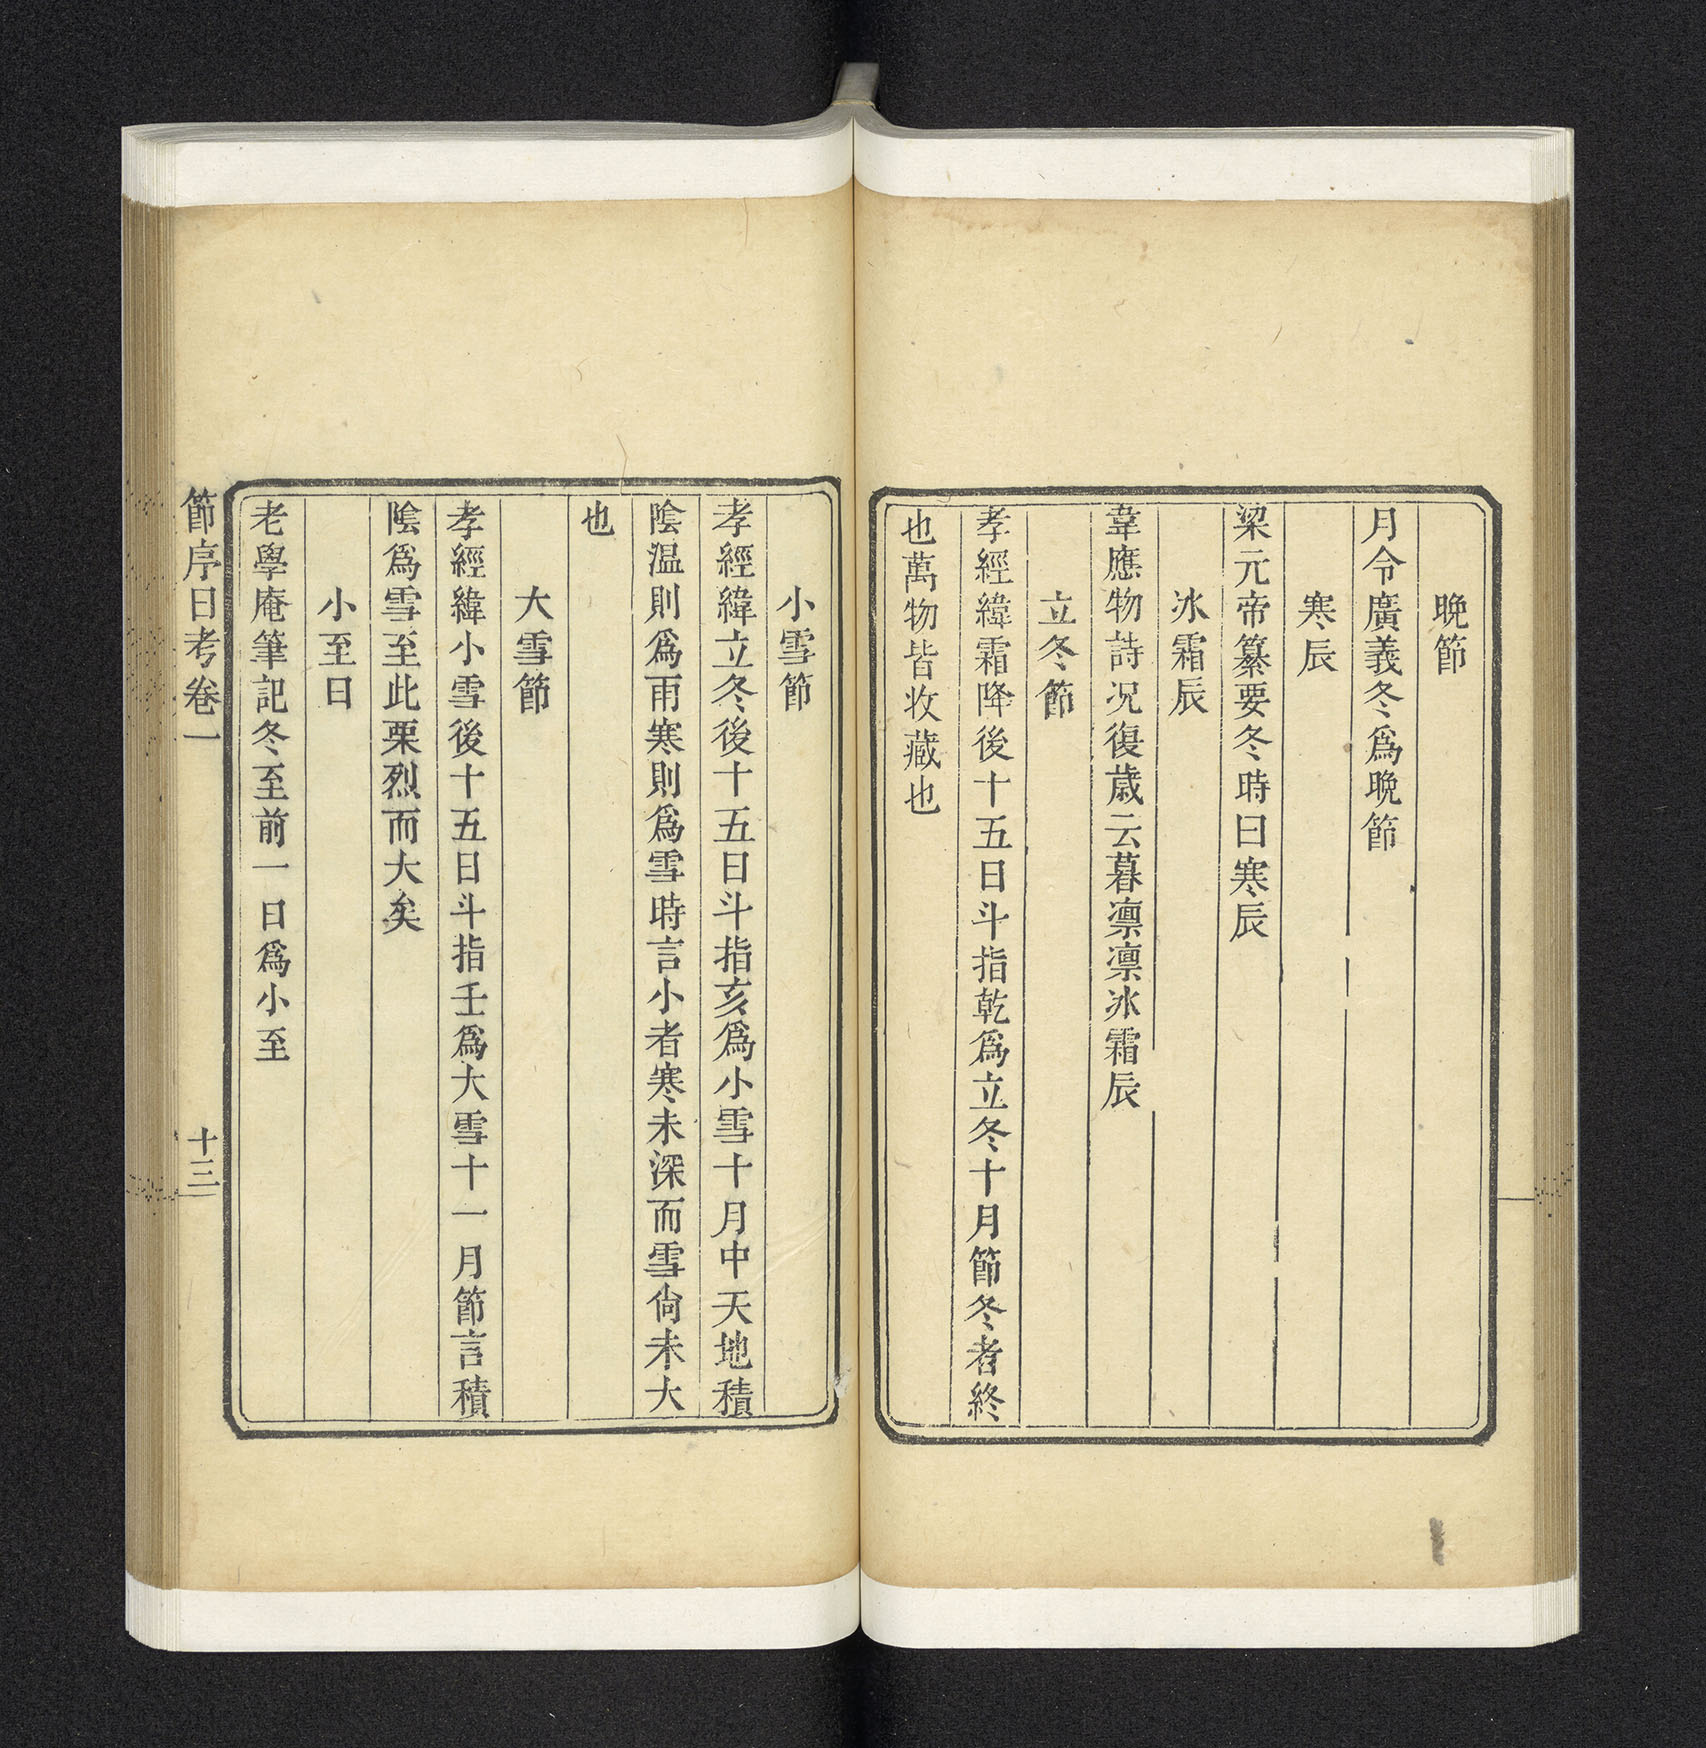 晩節
月令廣義冬爲晩節
寒辰
梁元帝纂要冬時曰寒辰
冰霜辰
韋應物詩況復歲云暮凛凛冰霜辰
立冬節
孝經緯霜降後十五日斗指乾爲立冬十月節冬者終
也萬物皆收藏也
小雪節
孝經緯立冬後十五日斗指亥爲小雪十月中天地積
陰温則爲雨寒則爲雪時言小者寒未深而雪尙未大
也
大雪節
孝經緯小雪後十五日斗指壬爲大雪十一月節言積
陰爲雪至此栗烈而大矣
小至日
老學庵筆記冬至前一日爲小至
節序日考卷一
十三